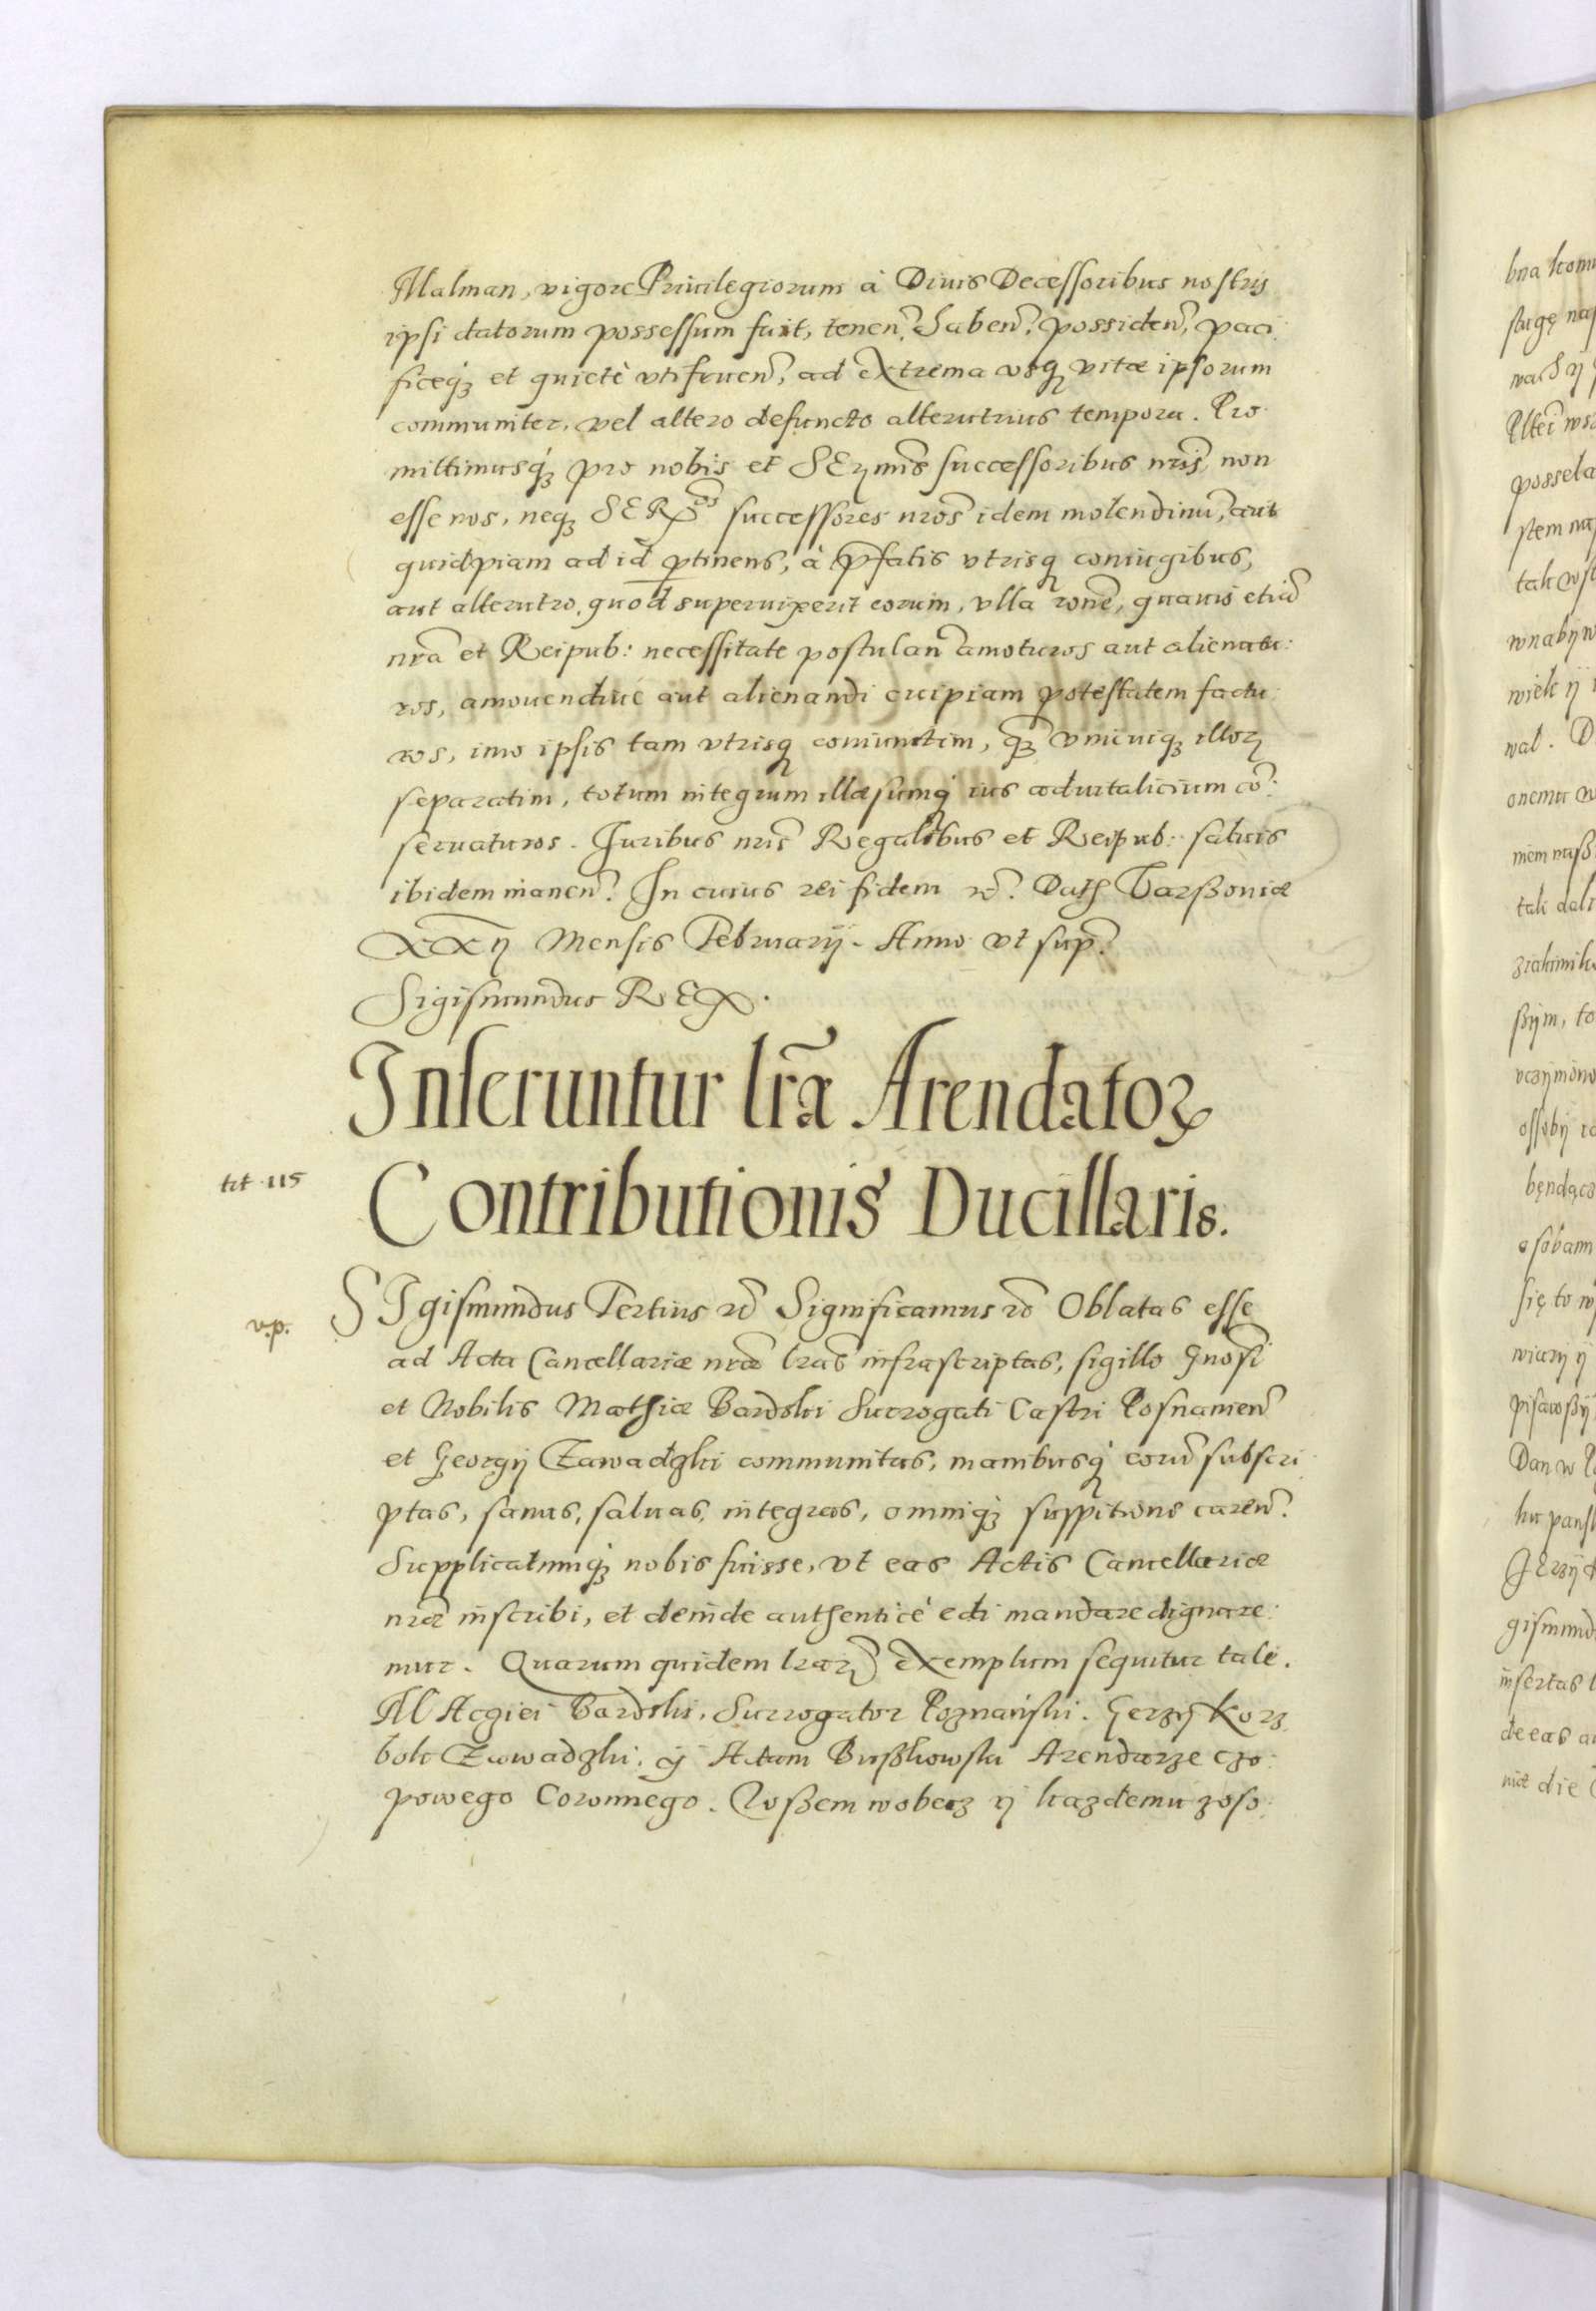 Malman, vigore Priuilegiorum à Diuis Decessoribus nostris
ipsi datorum possessum fuit, tenen. haben. possiden, paci
ficeq̃ et quietè vtifruen, ad extrema vsq vitæ ipsorum
communiter, vel altero defuncto alterutrius tempora. Pro
mittimusq̃ pro nobis et SEr̃mis successoribus nr̃is, non
esse nos, neq SERmos successores nr̃os idem molendinũ, aut
quidpiam ad id ptinens, à pfatis vtrisq coniugibus,
aut alterutro, quod superuixerit eorum, vlla rone, quauis etiã
nr̃a et Reipub: necessitate postulan amoturos aut alienatu:
ros, amouendiue aut alienandi cuipiam potestatem factu:
ros, imo ipsis tam vtrisq coniunctim, q̃ vnicuiq illorꝝ
separatim, totum integrum illæsumq ius aduitalicium cõ:
seruaturos. Iuribus nr̃is Regalibus et Reipub: saluis
ibidem manen. In cuius rei fidem &c. Dat Varßouiæ
XXij Mensis Februarij. Anno vt sup.
Sigismundus REX.
Inseruntur lr̃æ Arendatoꝝ
Contributionis Ducillaris.
tit 115
v.p.
SIgismundus Tertius &c Significamus &c Oblatas esse
ad Acta Cancellariæ nr̃æ lr̃as infrascriptas, sigillo Gnosi
et Nobilis Mathiæ Bardski Surrogati Castri Posnanien
et Georgij Zawadzki communitas, manibusq eorũ subscri
ptas, sanas, saluas, integras, omniq̃ suspitione caren.
Supplicatumq̃ nobis fuisse, vt eas Actis Cancellariæ
nr̃æ inscribi, et deinde authenticè edi mandare dignare:
mur. Quarum quidem lr̃arꝝ exemplum sequitur tale.
MAcgiei Bardski, Surrogator Poznański. Gerzÿ Korz
bok Zawadzki, ÿ Adam Bußkowski Arendarze czo:
powego Coronnego. Wßem wobecz ÿ kazdemu zoso: